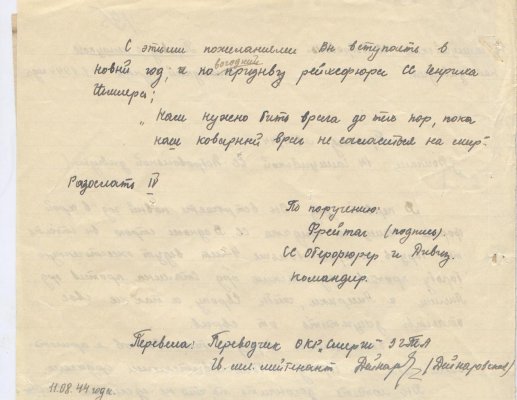 С этими пожеланиями Вы вступать в
новый год, и по новогодний призыву рейхсфюрера СС Генриха
Гиммлера:
„Нам нужно бить врага до тех пор, пока
наш коварный враг не согласится на мир".
Разослать IV
По поручению:
Фрейтаг (подпись).
СС Оберфюрер и Дивиз.
Командир.
Перевела: Переводчик ОКР „Смерш" 5 ГТА
Гв. мл. лейтенант Дейнар (Дейнаровская)
11.08.44 года